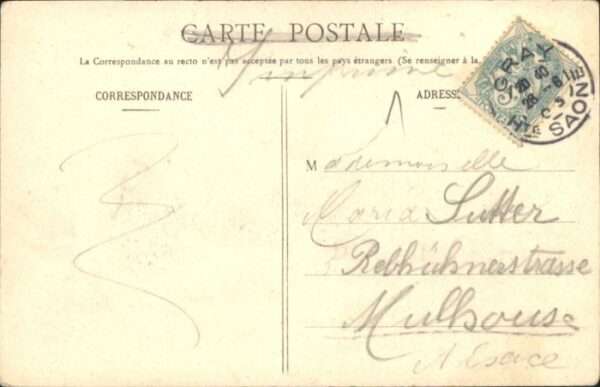 CARTE POSTALE
La Correspondance au recto n'est pas acceptée par tous les pays étrangers. (Se renseigner à la
Imprimé
CORRESPONDANCE
ADRESSE
GRAY
20 40
28 - 6
HTE SAONE
Mademoiselle
Maria Sutter
Rebhühnerstrasse
Mulhouse
Alsace